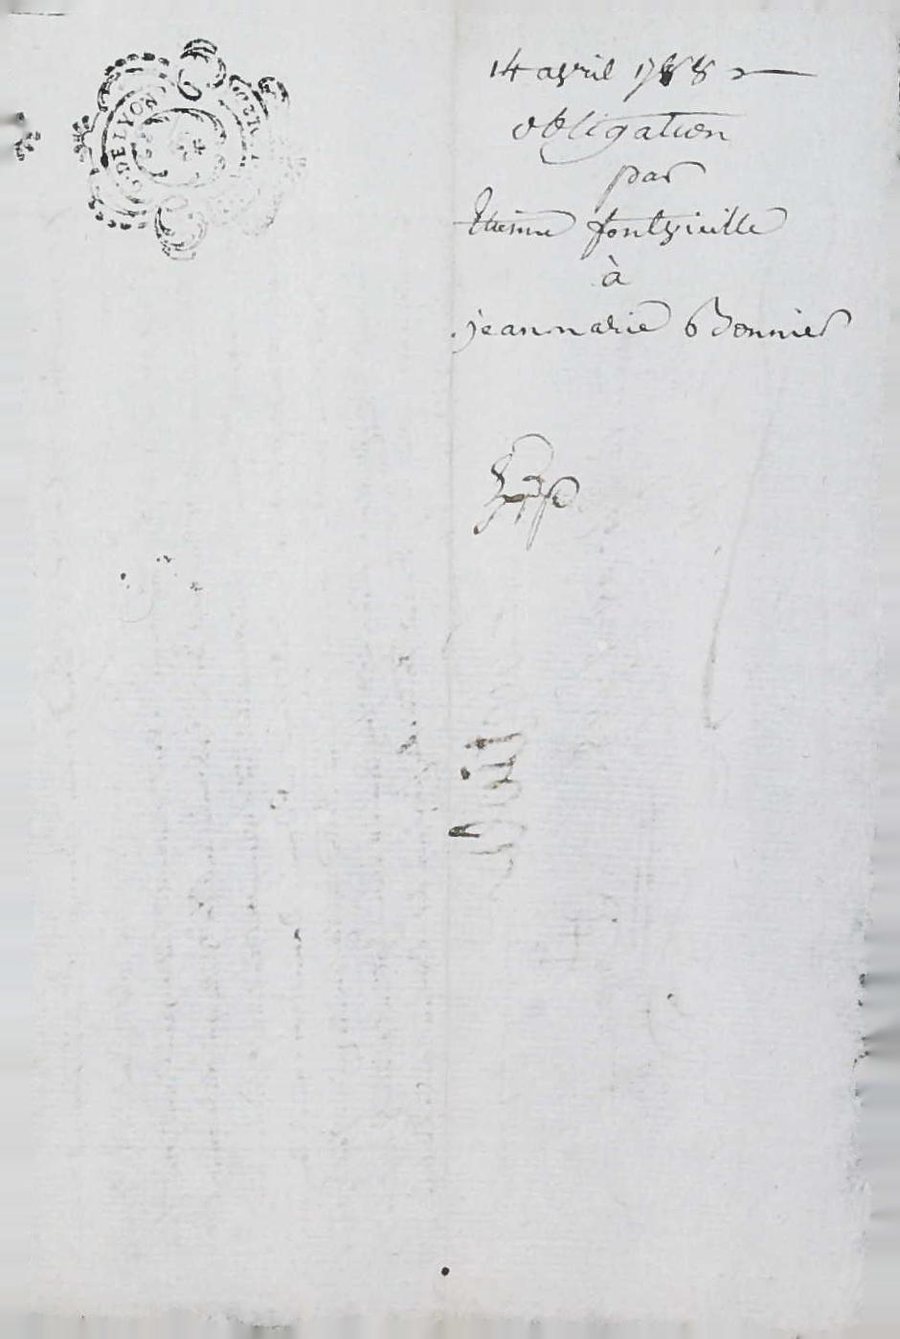 DE LYON
14 avril 1788
obligation
par
Etienne fontvieille
à
jeanmarie Bonnier